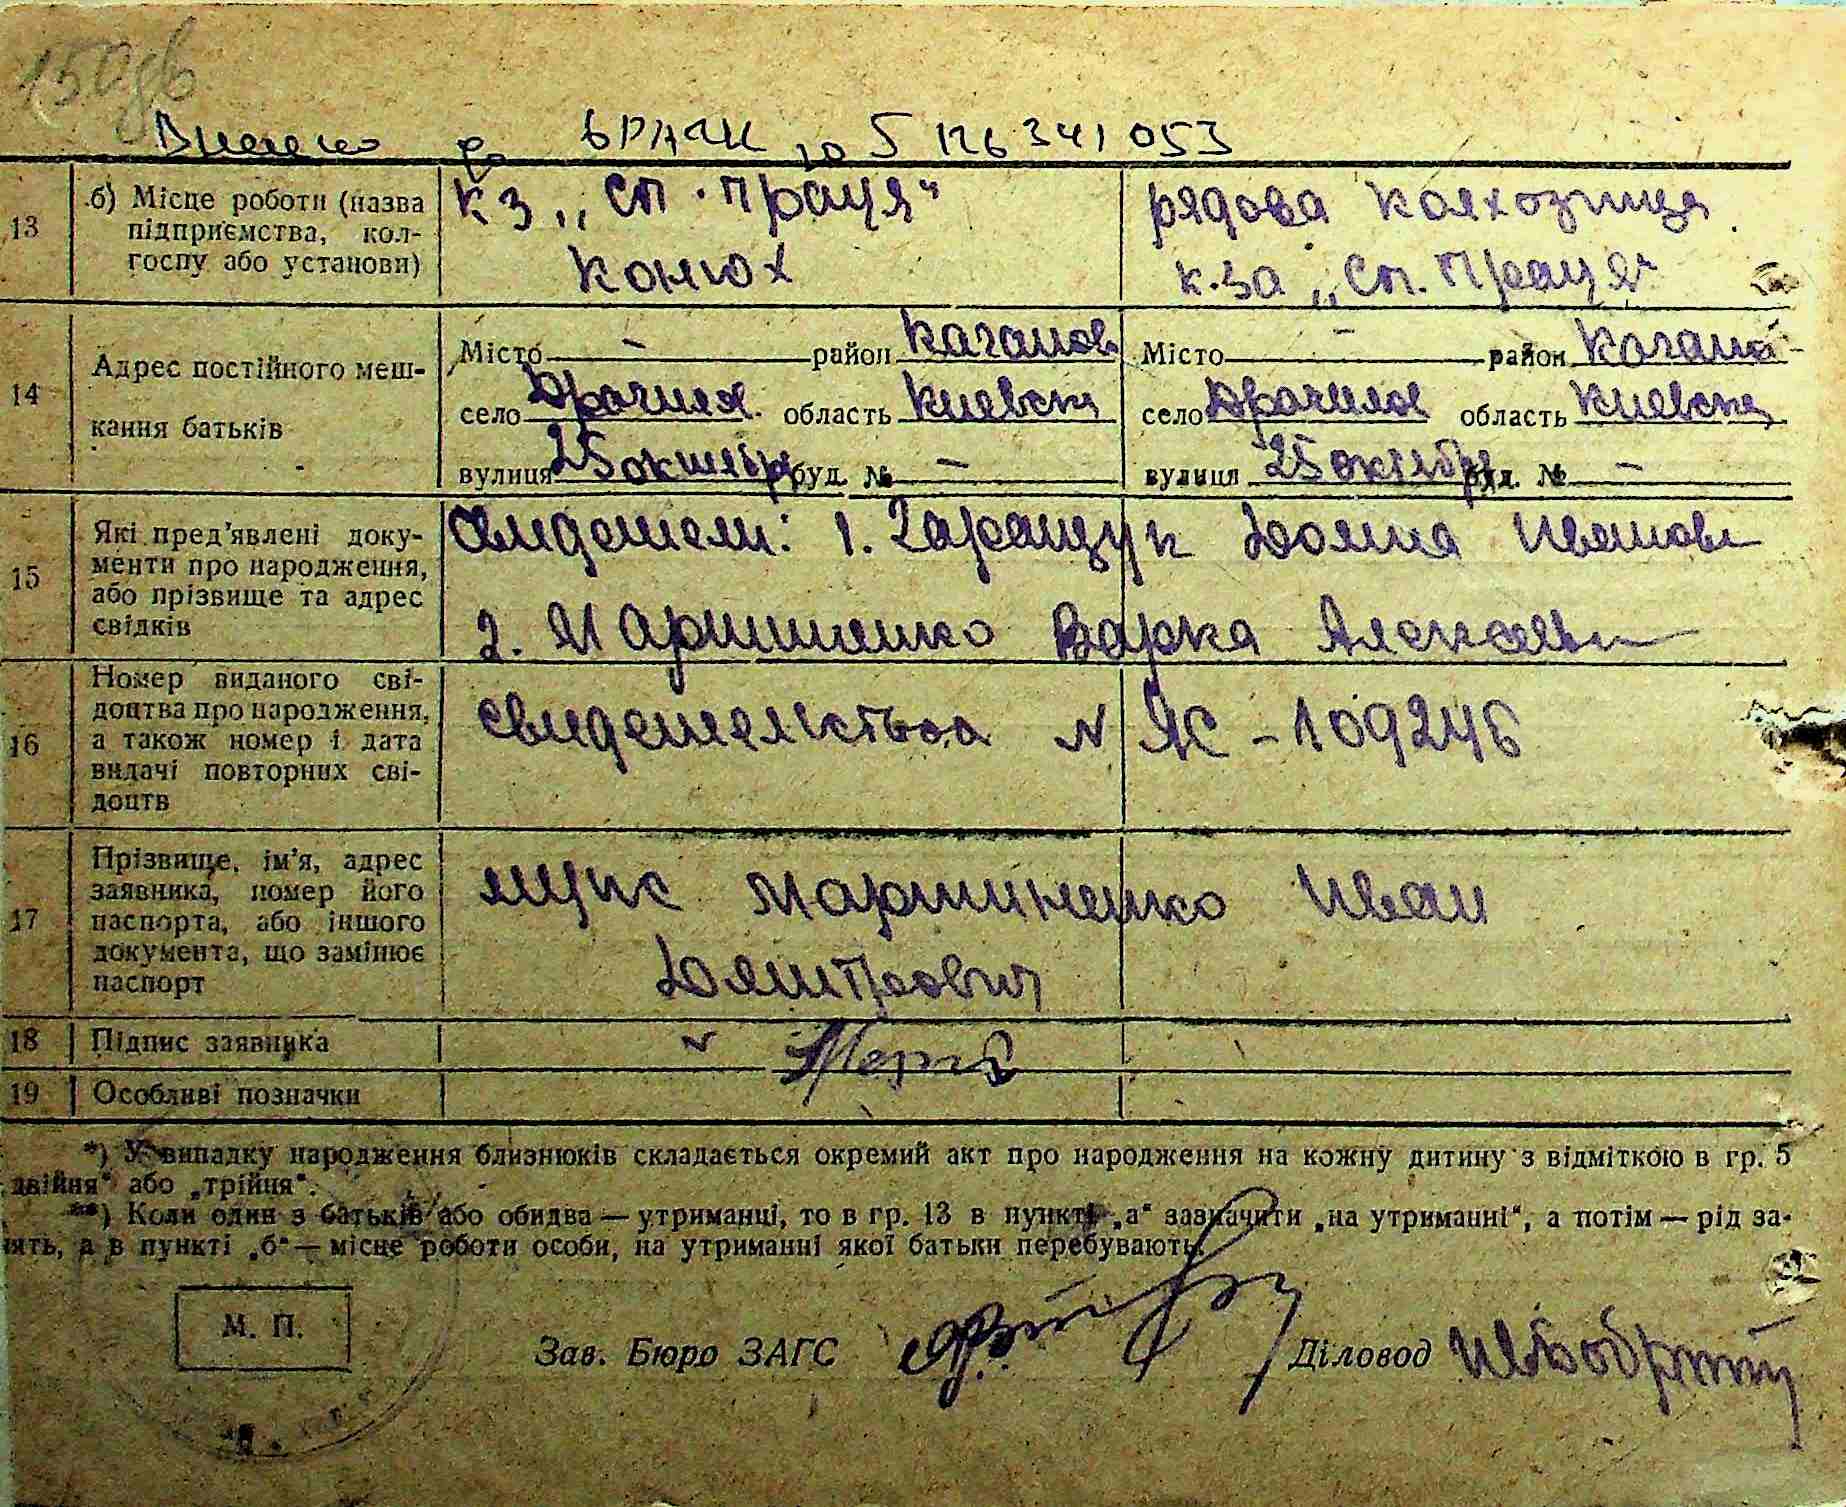 150
Внесено до ДРАЦС 10 5 126341053
13 б) Місце роботи (назва підприємства, колгоспу або установи)
кз „Сп. праця"
Конюх
рядова колхозница
к-за „Сп. Праця"
14 Адрес постійного мешкання батьків
Місто — район Каганов Місто — район Кагано
село Драчилов. область Киевска село Драчилов область Киевска
вулиця 25 октября буд. № — вулиця 25 октября буд. № —
15 Які пред'явлені документи про народження, або прізвище та адрес свідків
Свидетели: 1. Гаращук Домна Иванов
2. Мартиненко Варка Алексеев
16 Номер виданого свідоцтва про народження, а також номер і дата видачі повторних свідоцтв
свидетельства N ЯС - 109246
17 Прізвище, ім'я, адрес заявника, номер його паспорта, або іншого документа, що замінює паспорт
Мартиненко Иван
Дмитрович
18 Підпис заявника
19 Особливі позначки
*) У випадку народження близнюків складається окремий акт про народження на кожну дитину з відміткою в гр. 5
двійня" або „трійня".
**) Коли один з батьків або обидва — утриманці, то в гр. 13 в пункті „а" зазначити „на утриманні", а потім — рід за-
нять, а в пункті „б" — місце роботи особи, на утриманні якої батьки перебувають.
М. П.
Зав. Бюро ЗАГС Діловод